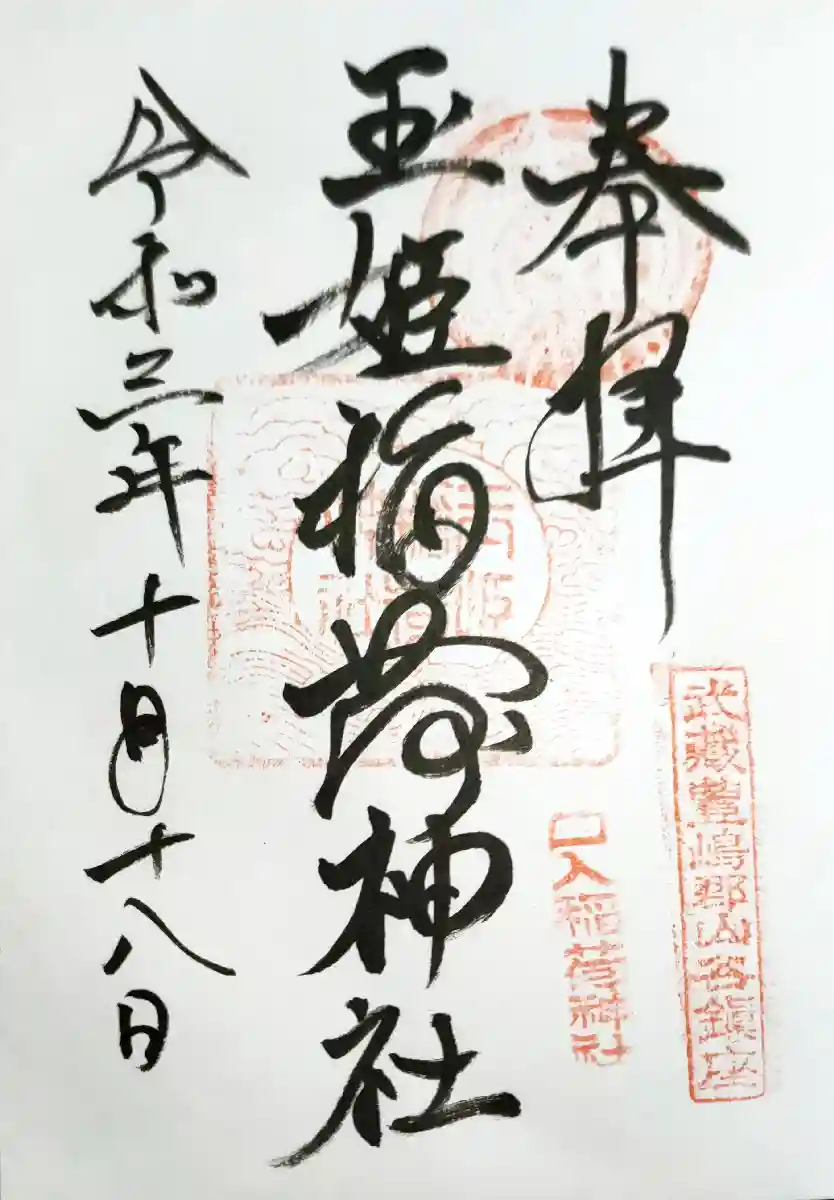 奉拝
武藏豊嶋郡山谷鎮座
口入稲荷神社
玉姫稲荷神社
令和三年十月十八日